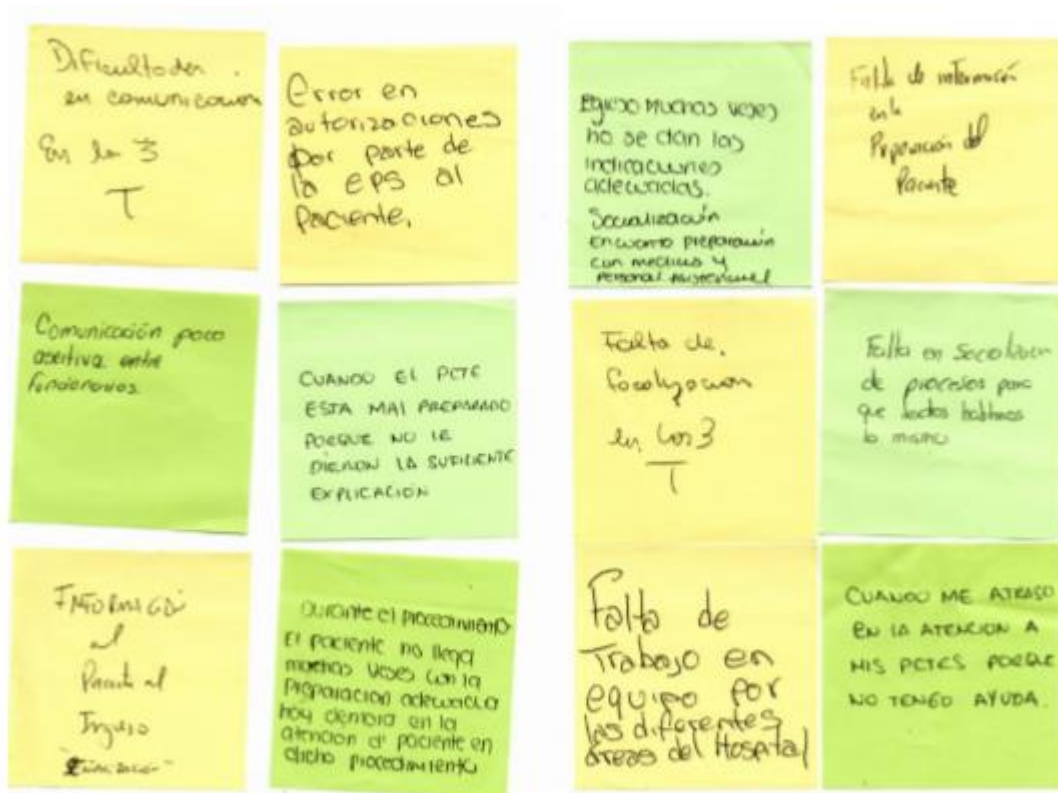 Dificultades
en comunicacion
En la 3
T
Error en
autorizaciones
por parte de
la EPS al
Paciente.
Egreso muchas veces
no se dan las
indicaciones
adecuadas.
Socialización
en cuanto preparación
con medicos y
personal asistencial
Falta de información
en la
Preparación del
Paciente
Comunicación poco
asertiva entre
funcionarios
CUANDO EL PCTE
ESTA MAL PREPARADO
PORQUE NO LE
DIERON LA SUFICIENTE
EXPLICACIÓN
Falta de
focalizacion
en los 3
T
Falta en Socializacion
de procesos para
que todos hablemos
lo mismo
al
Paciente al
Ingreso
Durante el procedimiento
El paciente no llega
muchas veces con la
preparacion adecuada
hay demora en la
atencion d' paciente en
dicho procedimiento
Falta de
Trabajo en
equipo por
las diferentes
áreas del Hospital
CUANDO ME ATRASO
EN LA ATENCION A
MIS PCTES PORQUE
NO TENGO AYUDA.